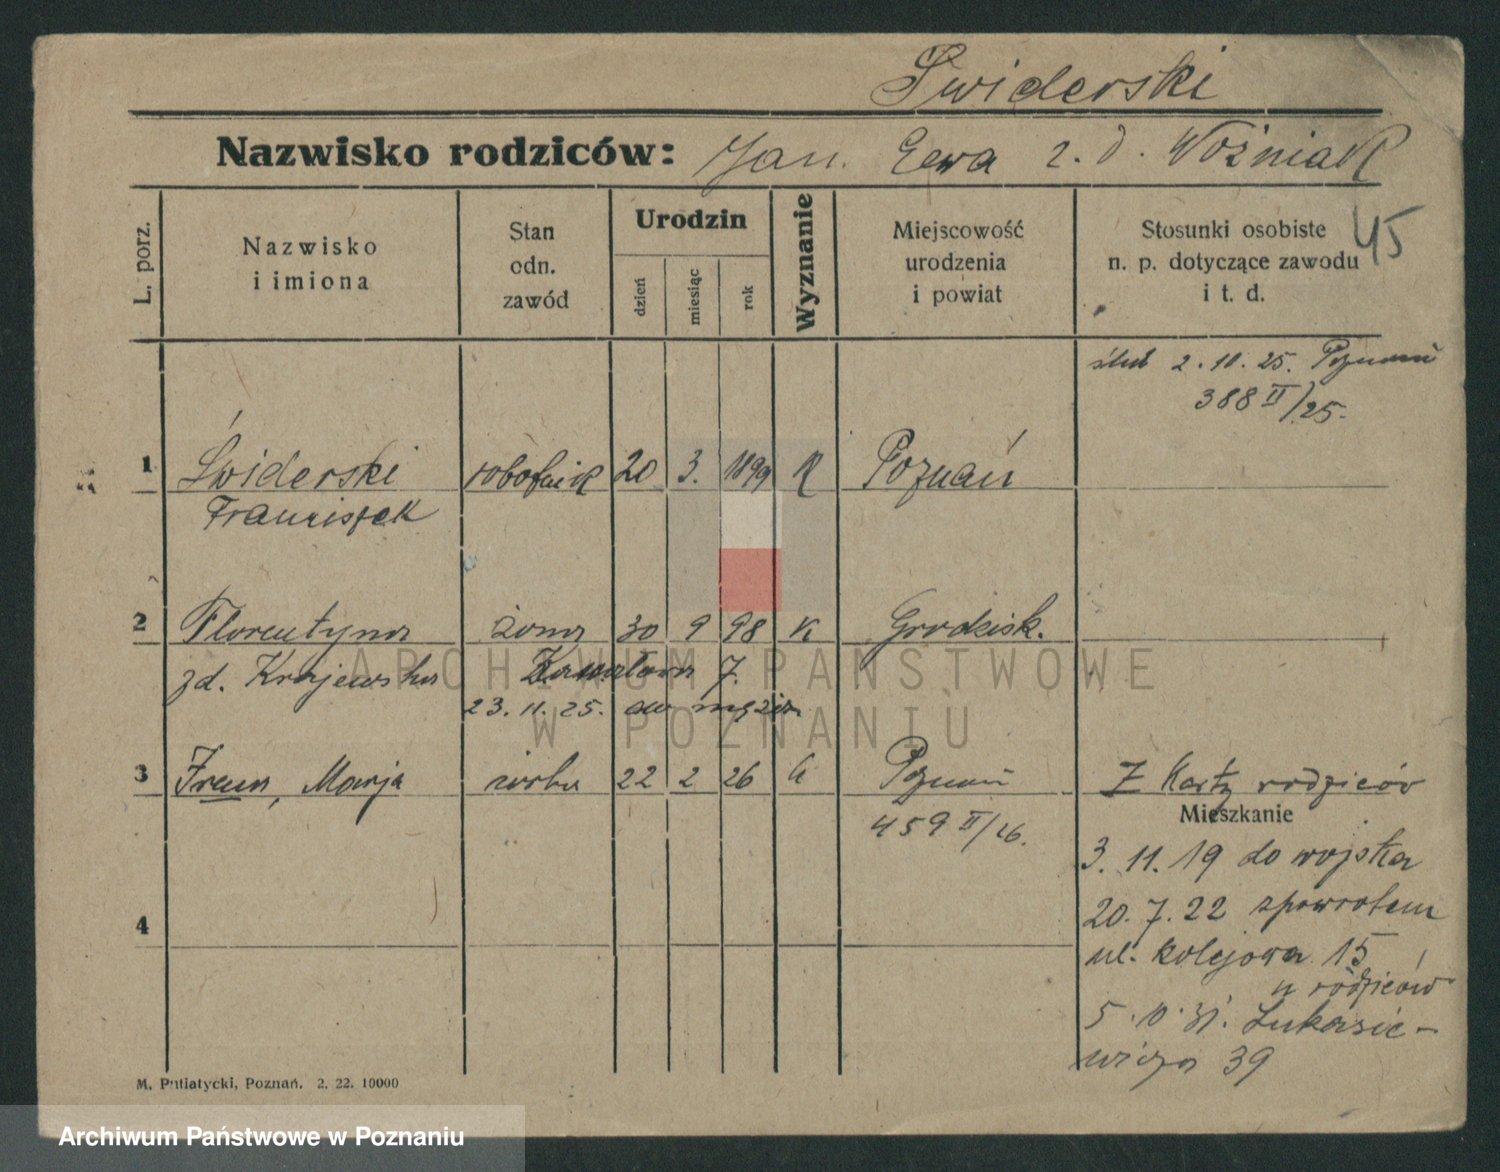 Swiderski
Nazwisko rodziców: Jan. Ewa z. d. Woźniak
L. porz.
Nazwisko
i imiona
Stan
odn.
zawód
Urodzin
dzień
miesiąc
rok
Wyznanie
Miejscowość
urodzenia
i powiat
Stosunki osobiste
n. p. dotyczące zawodu
i t. d.
45
ślub 2.10.25. Poznań
388 II/25.
1 Świderski robotnik 20 3. 1899 K Poznań
Franciszek
2 Florentyna żona 30 9 98 K Grodzisk.
zd. Krajewska 7.
23.11.25. do męża
3 Irena, Marja córka 22 2 26 k Poznań Z Karty rodziców
459 II/26.
Mieszkanie
3.11.19 do wojska
20.7.22 zpowrotem
ul. Kolejowa 15
u rodziców
5.10.31. Łukasie-
wicza 39
4
M. Putiatycki, Poznań. 2. 22. 10000
ARCHIWUM PAŃSTWOWE
W POZNANIU
Archiwum Państwowe w Poznaniu